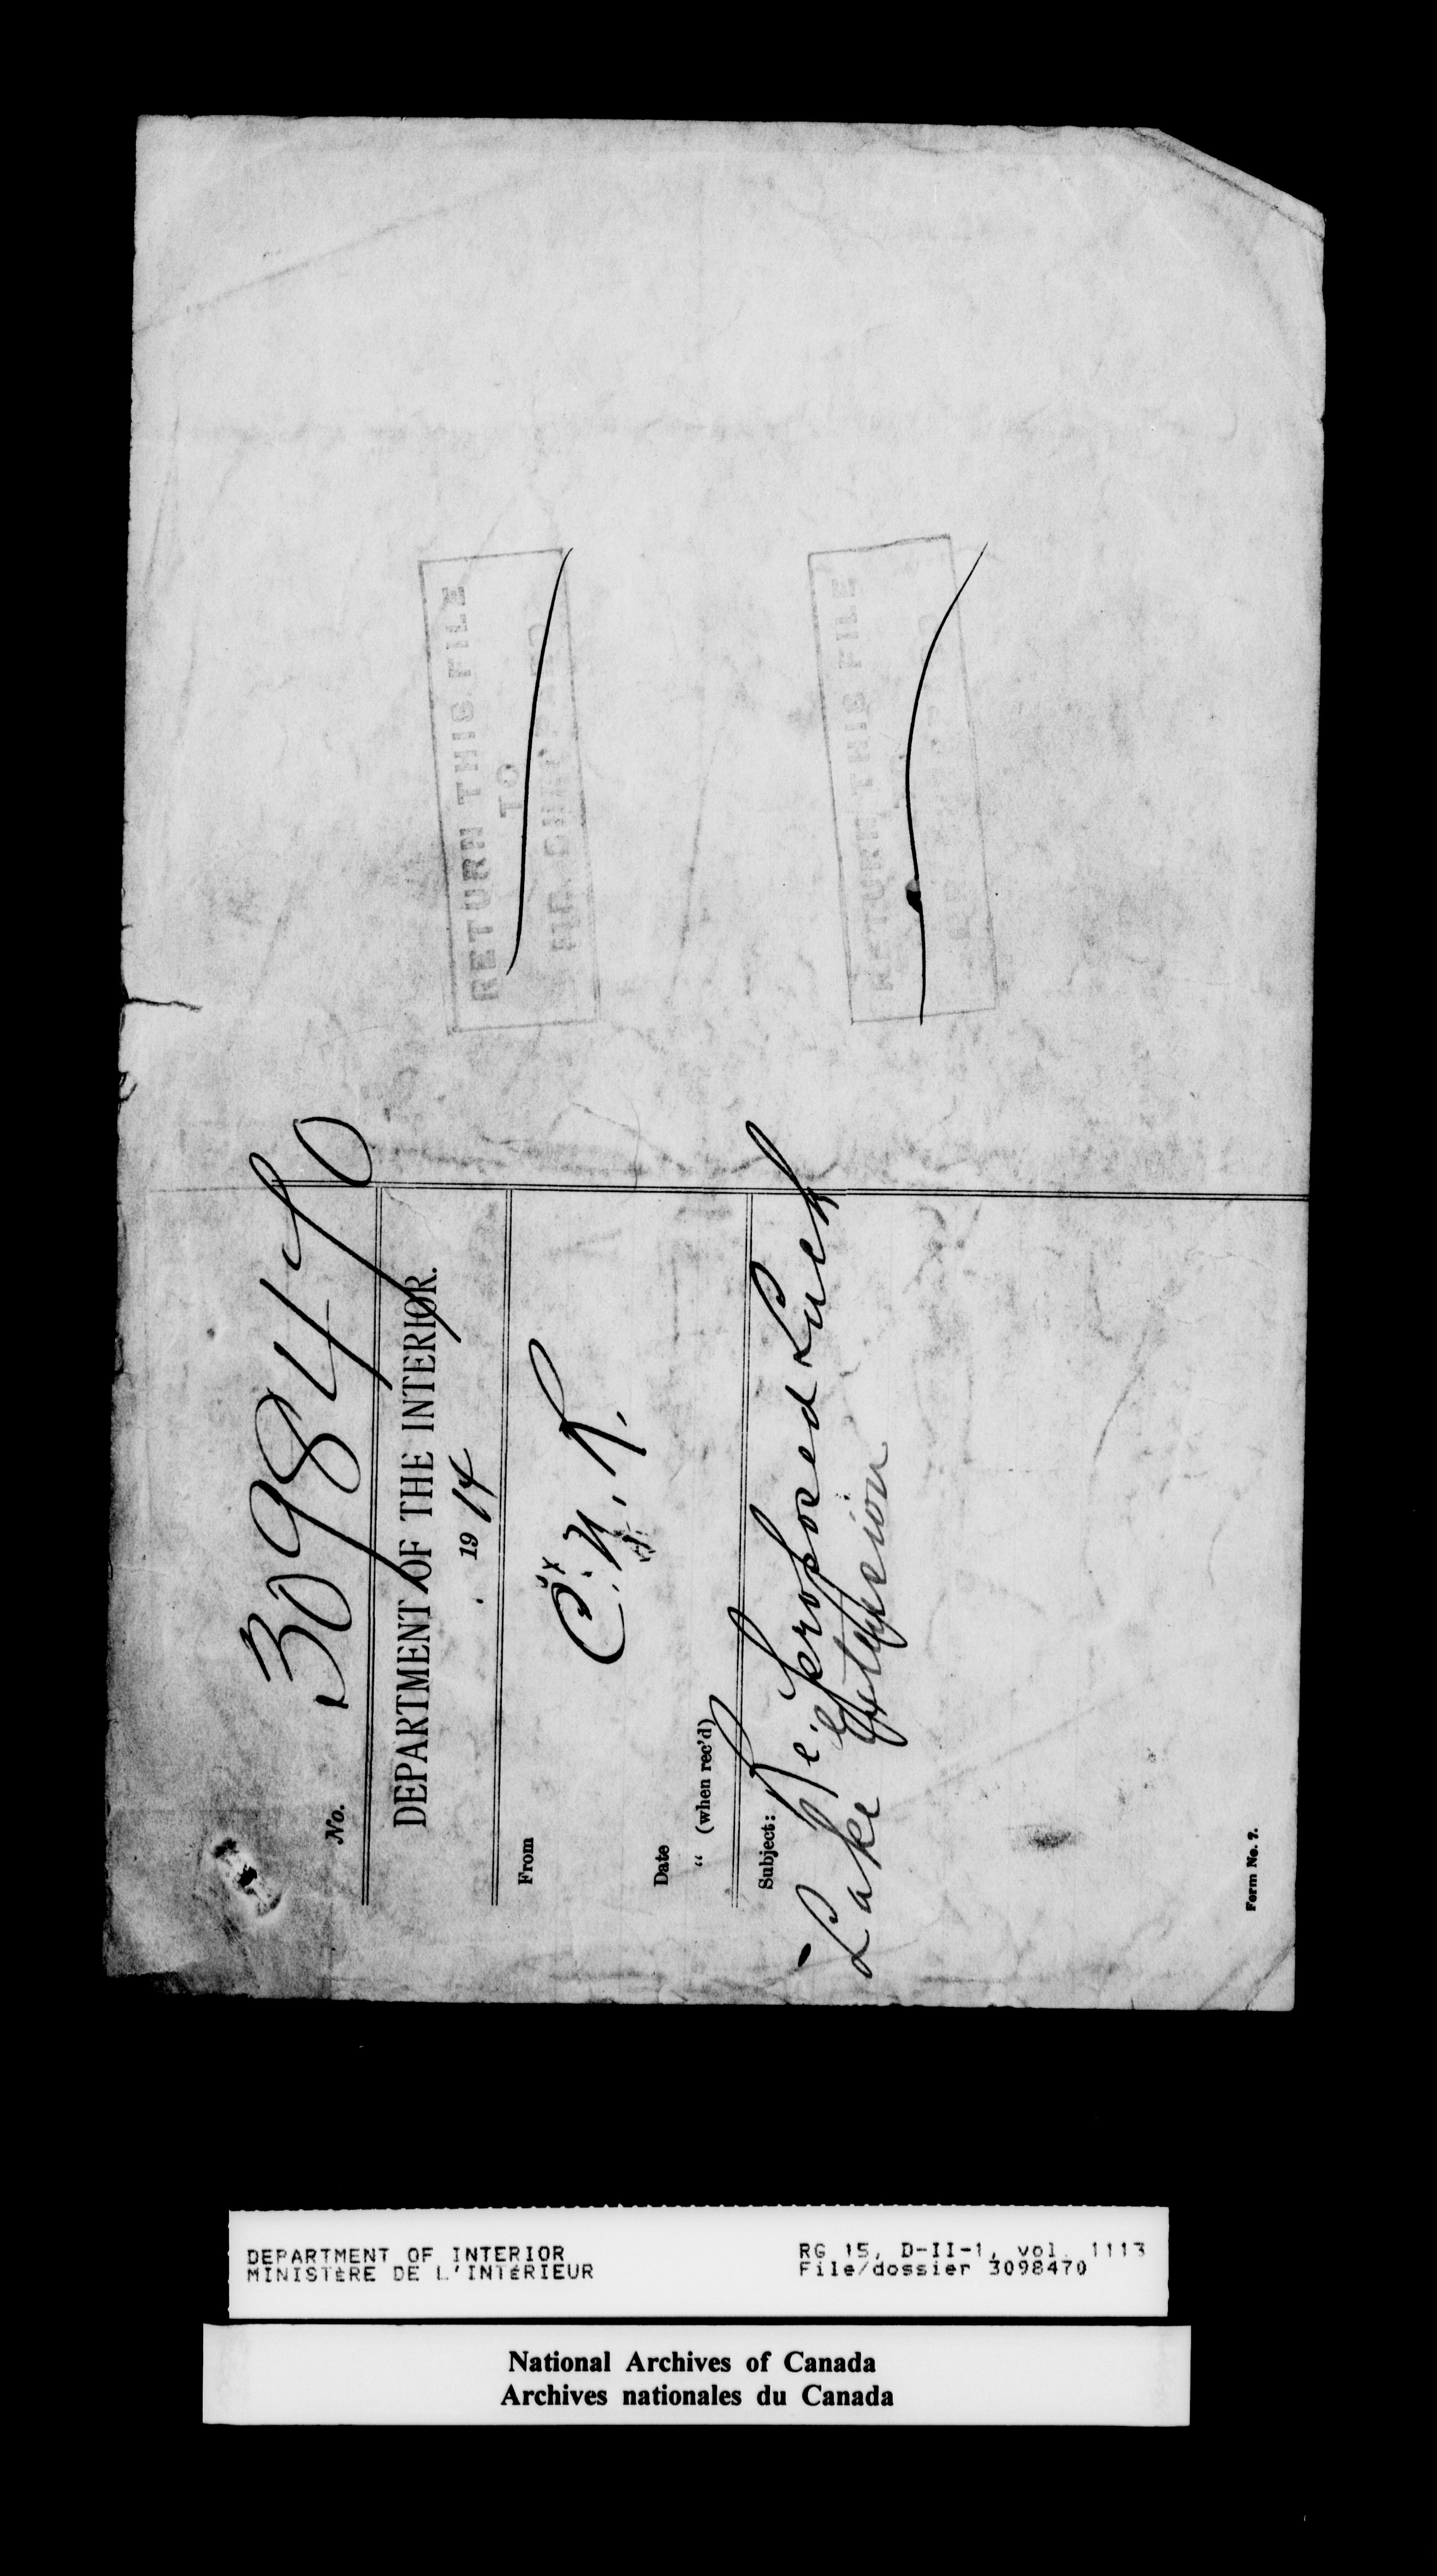 No. 3098470
DEPARTMENT OF THE INTERIOR.
1914
From
C.N.R.
Date
" (when rec'd)
Subject: Re. proposed Luck
Lake extension
Form No. 7.
RETURN THIS FILE
TO
RETURN THIS FILE
DEPARTMENT OF INTERIOR
MINISTÈRE DE L'INTÉRIEUR
RG 15, D-II-1, vol. 1113
File/dossier 3098470
National Archives of Canada
Archives nationales du Canada